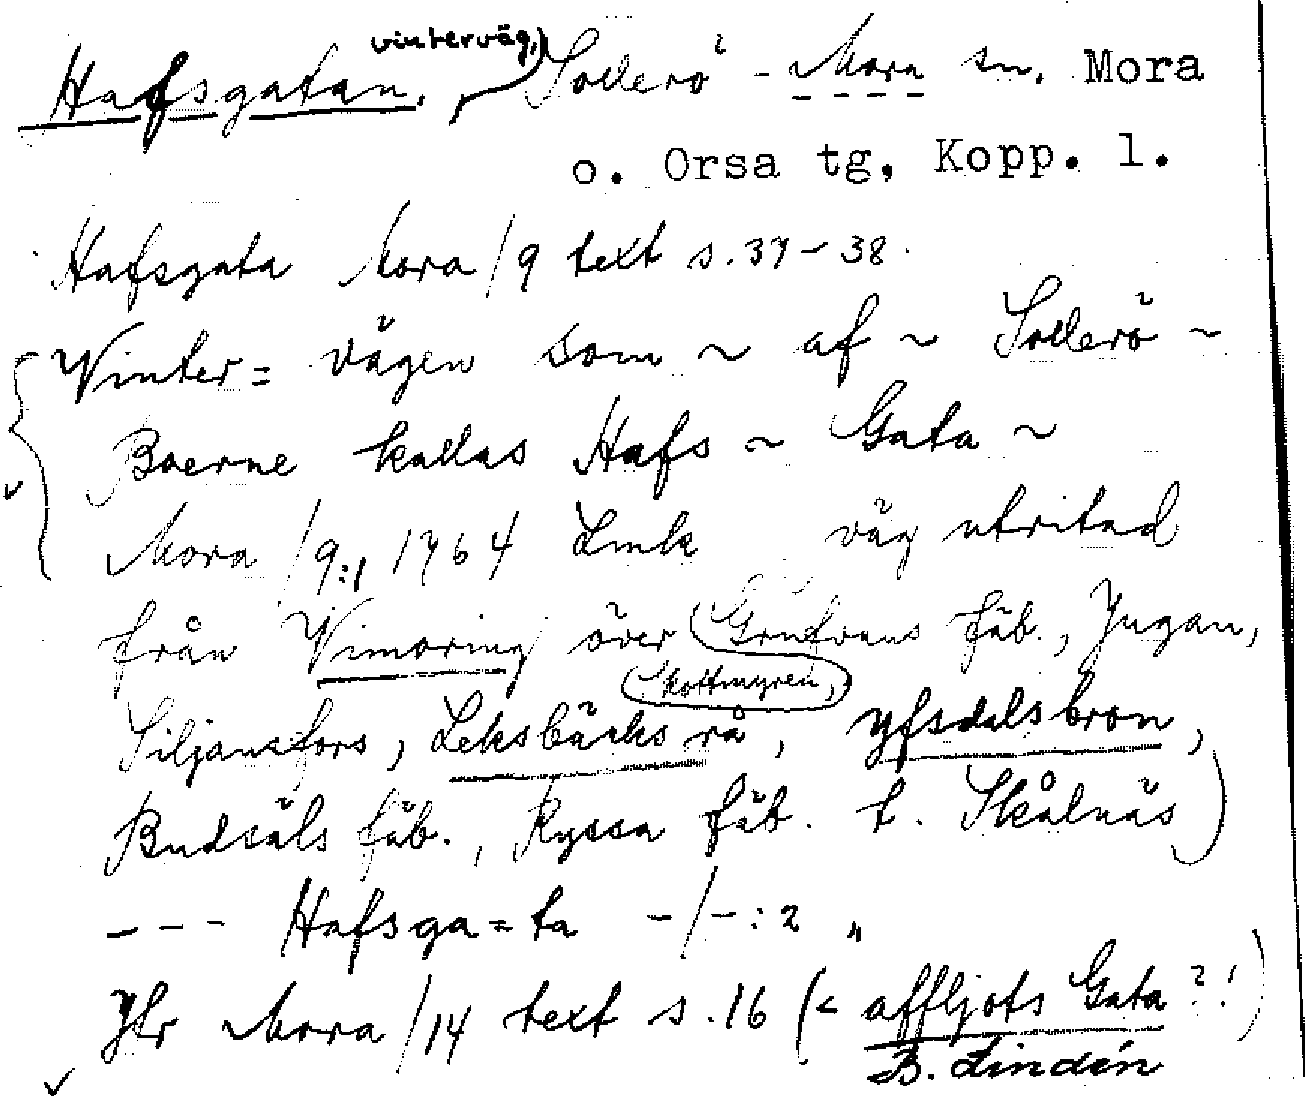 Hafsgatan, vinterväg, Sollerö - Mora sn. Mora
o. Orsa tg, Kopp. l.
Hafsgata Mora/9 text s. 37-38.
Vinter= vägen som ~ af ~ Sollerö ~
Boerne kallas Hafs ~ Gata ~
Mora/9:1 1764 Lmk väg utritad
från Vimoring över Grufvans fäb., Jugan,
Skottmyren,
Siljansfors, Leksbäcks rå, Yfsdalsbron,
Budsäls fäb., Ryssa fäb. t. Skålnäs)
--- Hafsga=ta -/-:2 "
Jfr Mora/14 text s. 16 (< affljots Gata ?!)
B. Lindén